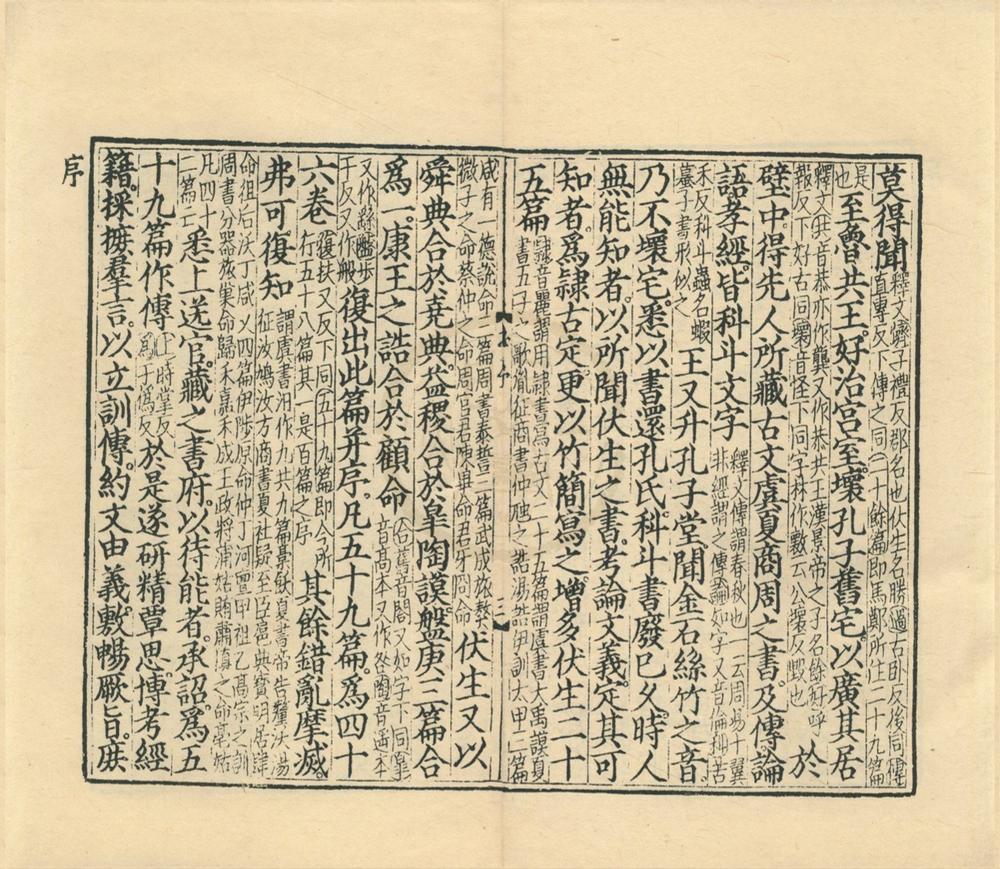 莫得聞釋文濟子禮反郡名也伏生名勝過古卧反後同傳直專反下傳之同二十餘篇即馬鄭所注二十九篇
是也至魯共王好治宮室壞孔子舊宅以廣其居
釋文共音恭亦作龔又作恭共王漢景帝之子名餘好呼報反下好古同壞音怪下同字林作㱁云公壞反毀也於
壁中得先人所藏古文虞夏商周之書及傳論
語孝經皆科斗文字釋文傳謂春秋也一云周易十翼非經謂之傳論如字又音倫科苦
禾反科斗蟲名蝦蟇子書形似之王又升孔子堂聞金石絲竹之音
乃不壞宅悉以書還孔氏科斗書廢已久時人
無能知者以所聞伏生之書考論文義定其可
知者爲隸古定更以竹簡寫之增多伏生二十
五篇隸音麗謂用隸書寫古文二十五篇謂虞書大禹謨夏書五子之歌胤征商書仲虺之誥湯誥伊訓太甲三篇
序 三
咸有一德說命三篇周書泰誓三篇武成旅獒微子之命蔡仲之命周官君陳畢命君牙冏命伏生又以
舜典合於堯典益稷合於皐陶謨盤庚三篇合
爲一康王之誥合於顧命合舊音閤又如字下同皐音高本又作咎陶音遥本
又作繇盤步干反又作般復出此篇并序凡五十九篇爲四十
六卷復扶又反下同五十九篇即今所行五十八篇其一是百篇之序其餘錯亂摩滅
弗可復知謂虞書汨作九共九篇槀飫夏書帝告釐沃湯征汝鳩汝方商書夏社疑至臣扈典寶明居肆
命徂后沃丁咸乂四篇伊陟原命仲丁河亶甲祖乙高宗之訓周書分器旅巢命歸禾嘉禾成王政將蒲姑賄肅慎之命亳姑
凡四十二篇亡悉上送官藏之書府以待能者承詔爲五
十九篇作傳上時掌反爲于僞反於是遂研精覃思博考經
籍採摭羣言以立訓傳約文由義敷暢厥旨庶
序